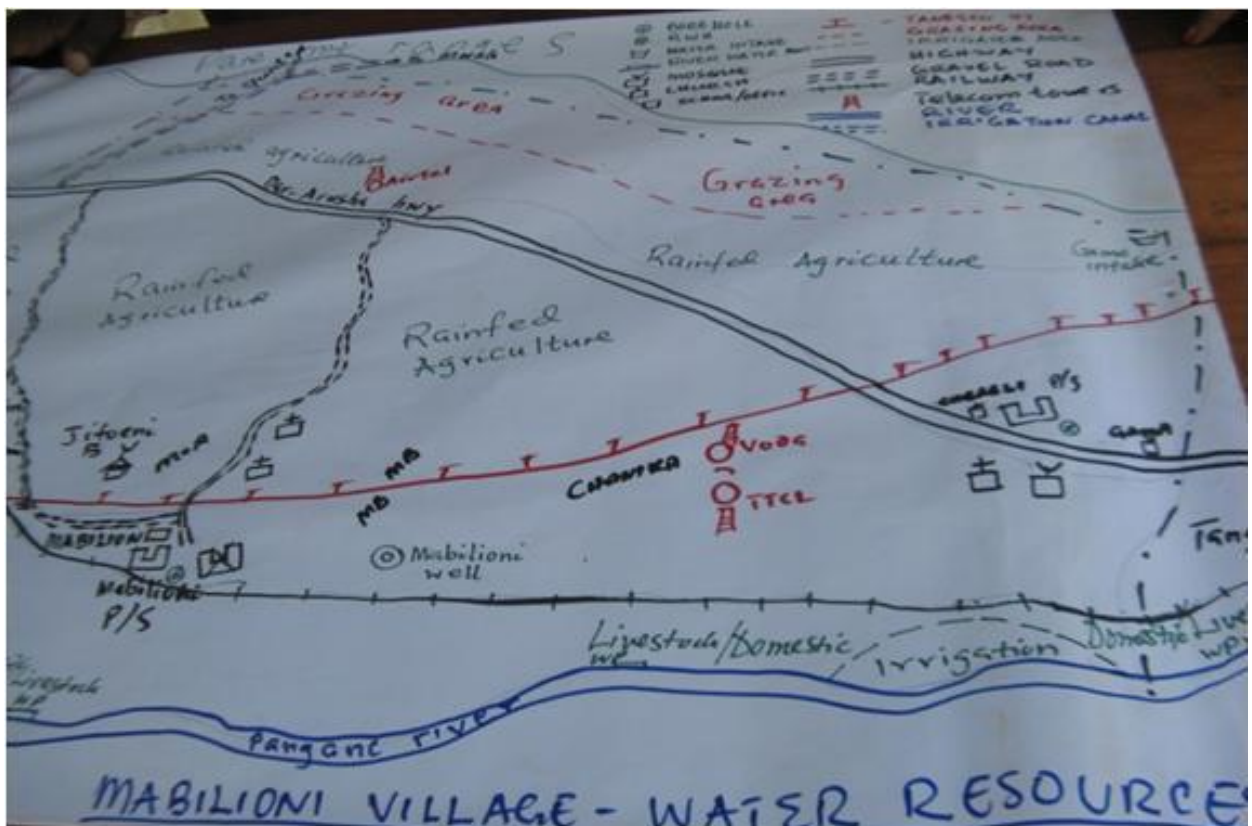 BOREHOLE
RWH
WATER INTAKE
MOSQUE
CHURCH
GRAZING AREA
HIGHWAY
GRAVEL ROAD
RAILWAY
Telecom towers
RIVER
IRRIGATION CANAL
Grazing Area
agriculture
Airtel
Arusha HWY
Grazing
area
Rainfed Agriculture
Game
intake
Rainfed
agriculture
Rainfed
Agriculture
Jitoeni
B
P/S
GAMA
VODA
CHANIKA
TTCL
MB
MB
MABILIONI
Mabilioni
P/S
Mabilioni
well
Tang
Livestock/Domestic
Irrigation
Domestic
Live
WP
Livestock
WP
Pangani river
MABILIONI VILLAGE - WATER RESOURCES